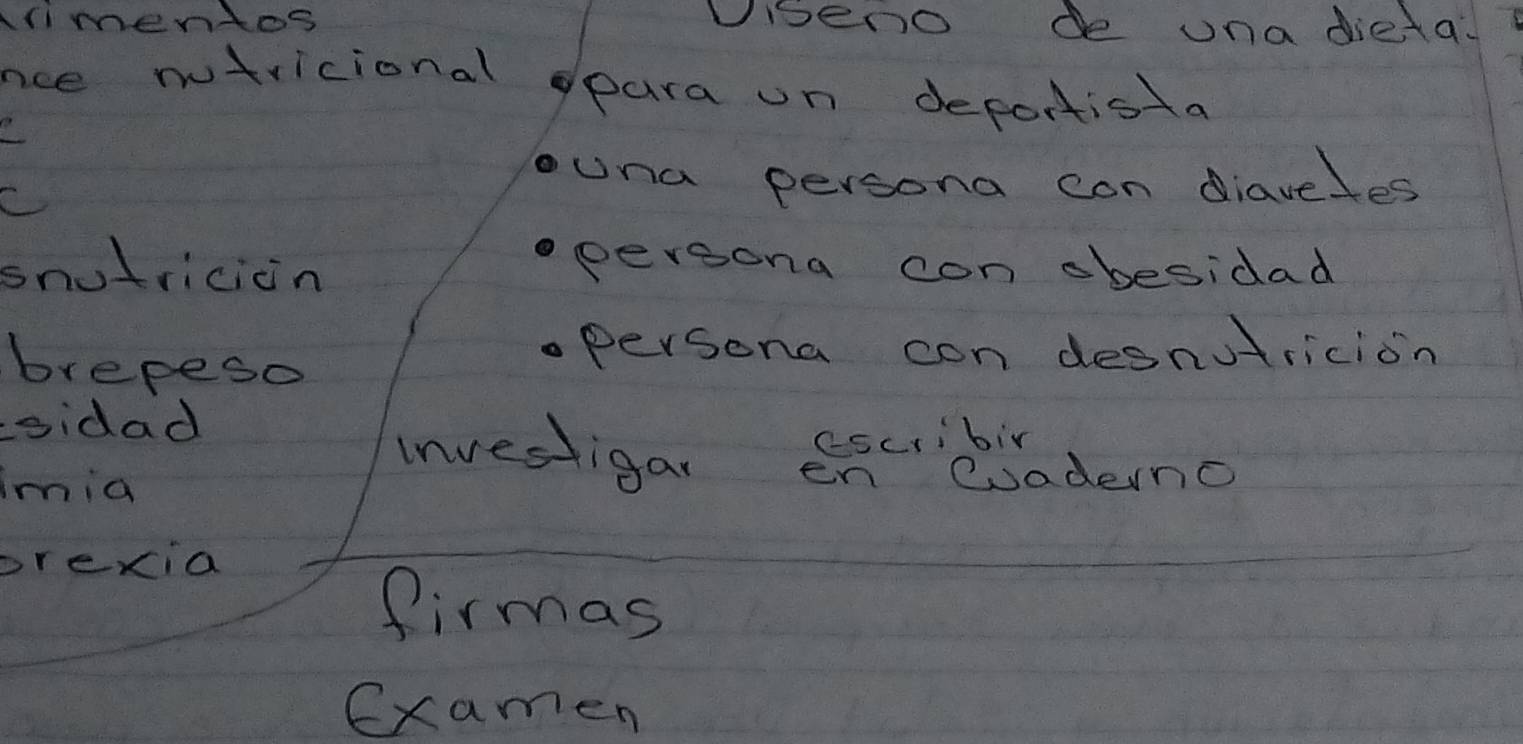 Diseño de una dieta:
para un deportista
una persona con diavetes
persona con obesidad
persona con desnutrición
investigar escribir
en Cuaderno
firmas
Examen
rimentos
nce nutricional
snutrición
brepeso
sidad
imia
orexia